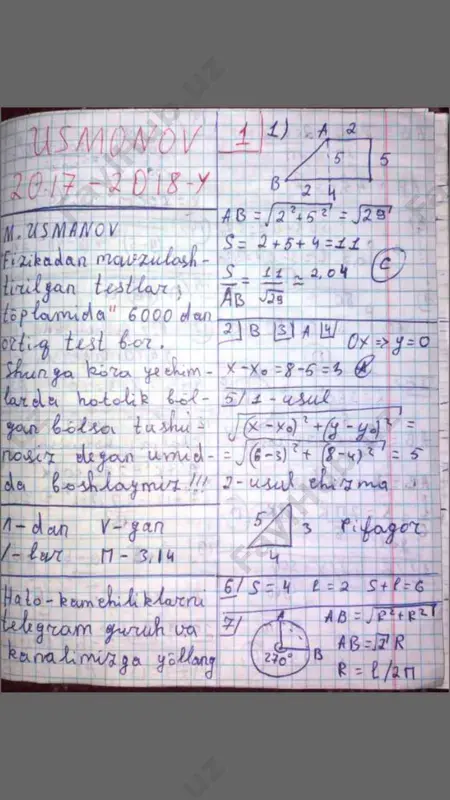 USMONOV
2017-2018-Y
M. USMANOV
Fizikadan mavzulash-
tirilgan testlar
töplamida" 6000 dan
ortiq test bor.
Shunga köra yechim-
larda hotolik böl-
gan bölsa tushu-
nasiz degan umid-
da boshlaymiz!!!
Λ-dan V-gan
/-lar П-3,14
Hato-kamchiliklarni
telegram guruh va
kanalimizga yöllang
1 1) A 2
5 5
B 2 4
AB = √2²+5² = √29
S = 2+5+4=11
S/AB = 11/√29 ≈ 2,04 C
2) B 3) A 4) Ox => y=0
x-x₀ = 8-5=3 A
5) 1-usul
√(x-x₀)²+(y-y₀)² =
= √(6-3)²+(8-4)² = 5
2-usul chizma
5 3 Pifagor
4
6) S=4 l=2 S+l=6
7) A AB=√R²+R²
B AB=√2 R
270° R = l/2П
FayllHub.uz